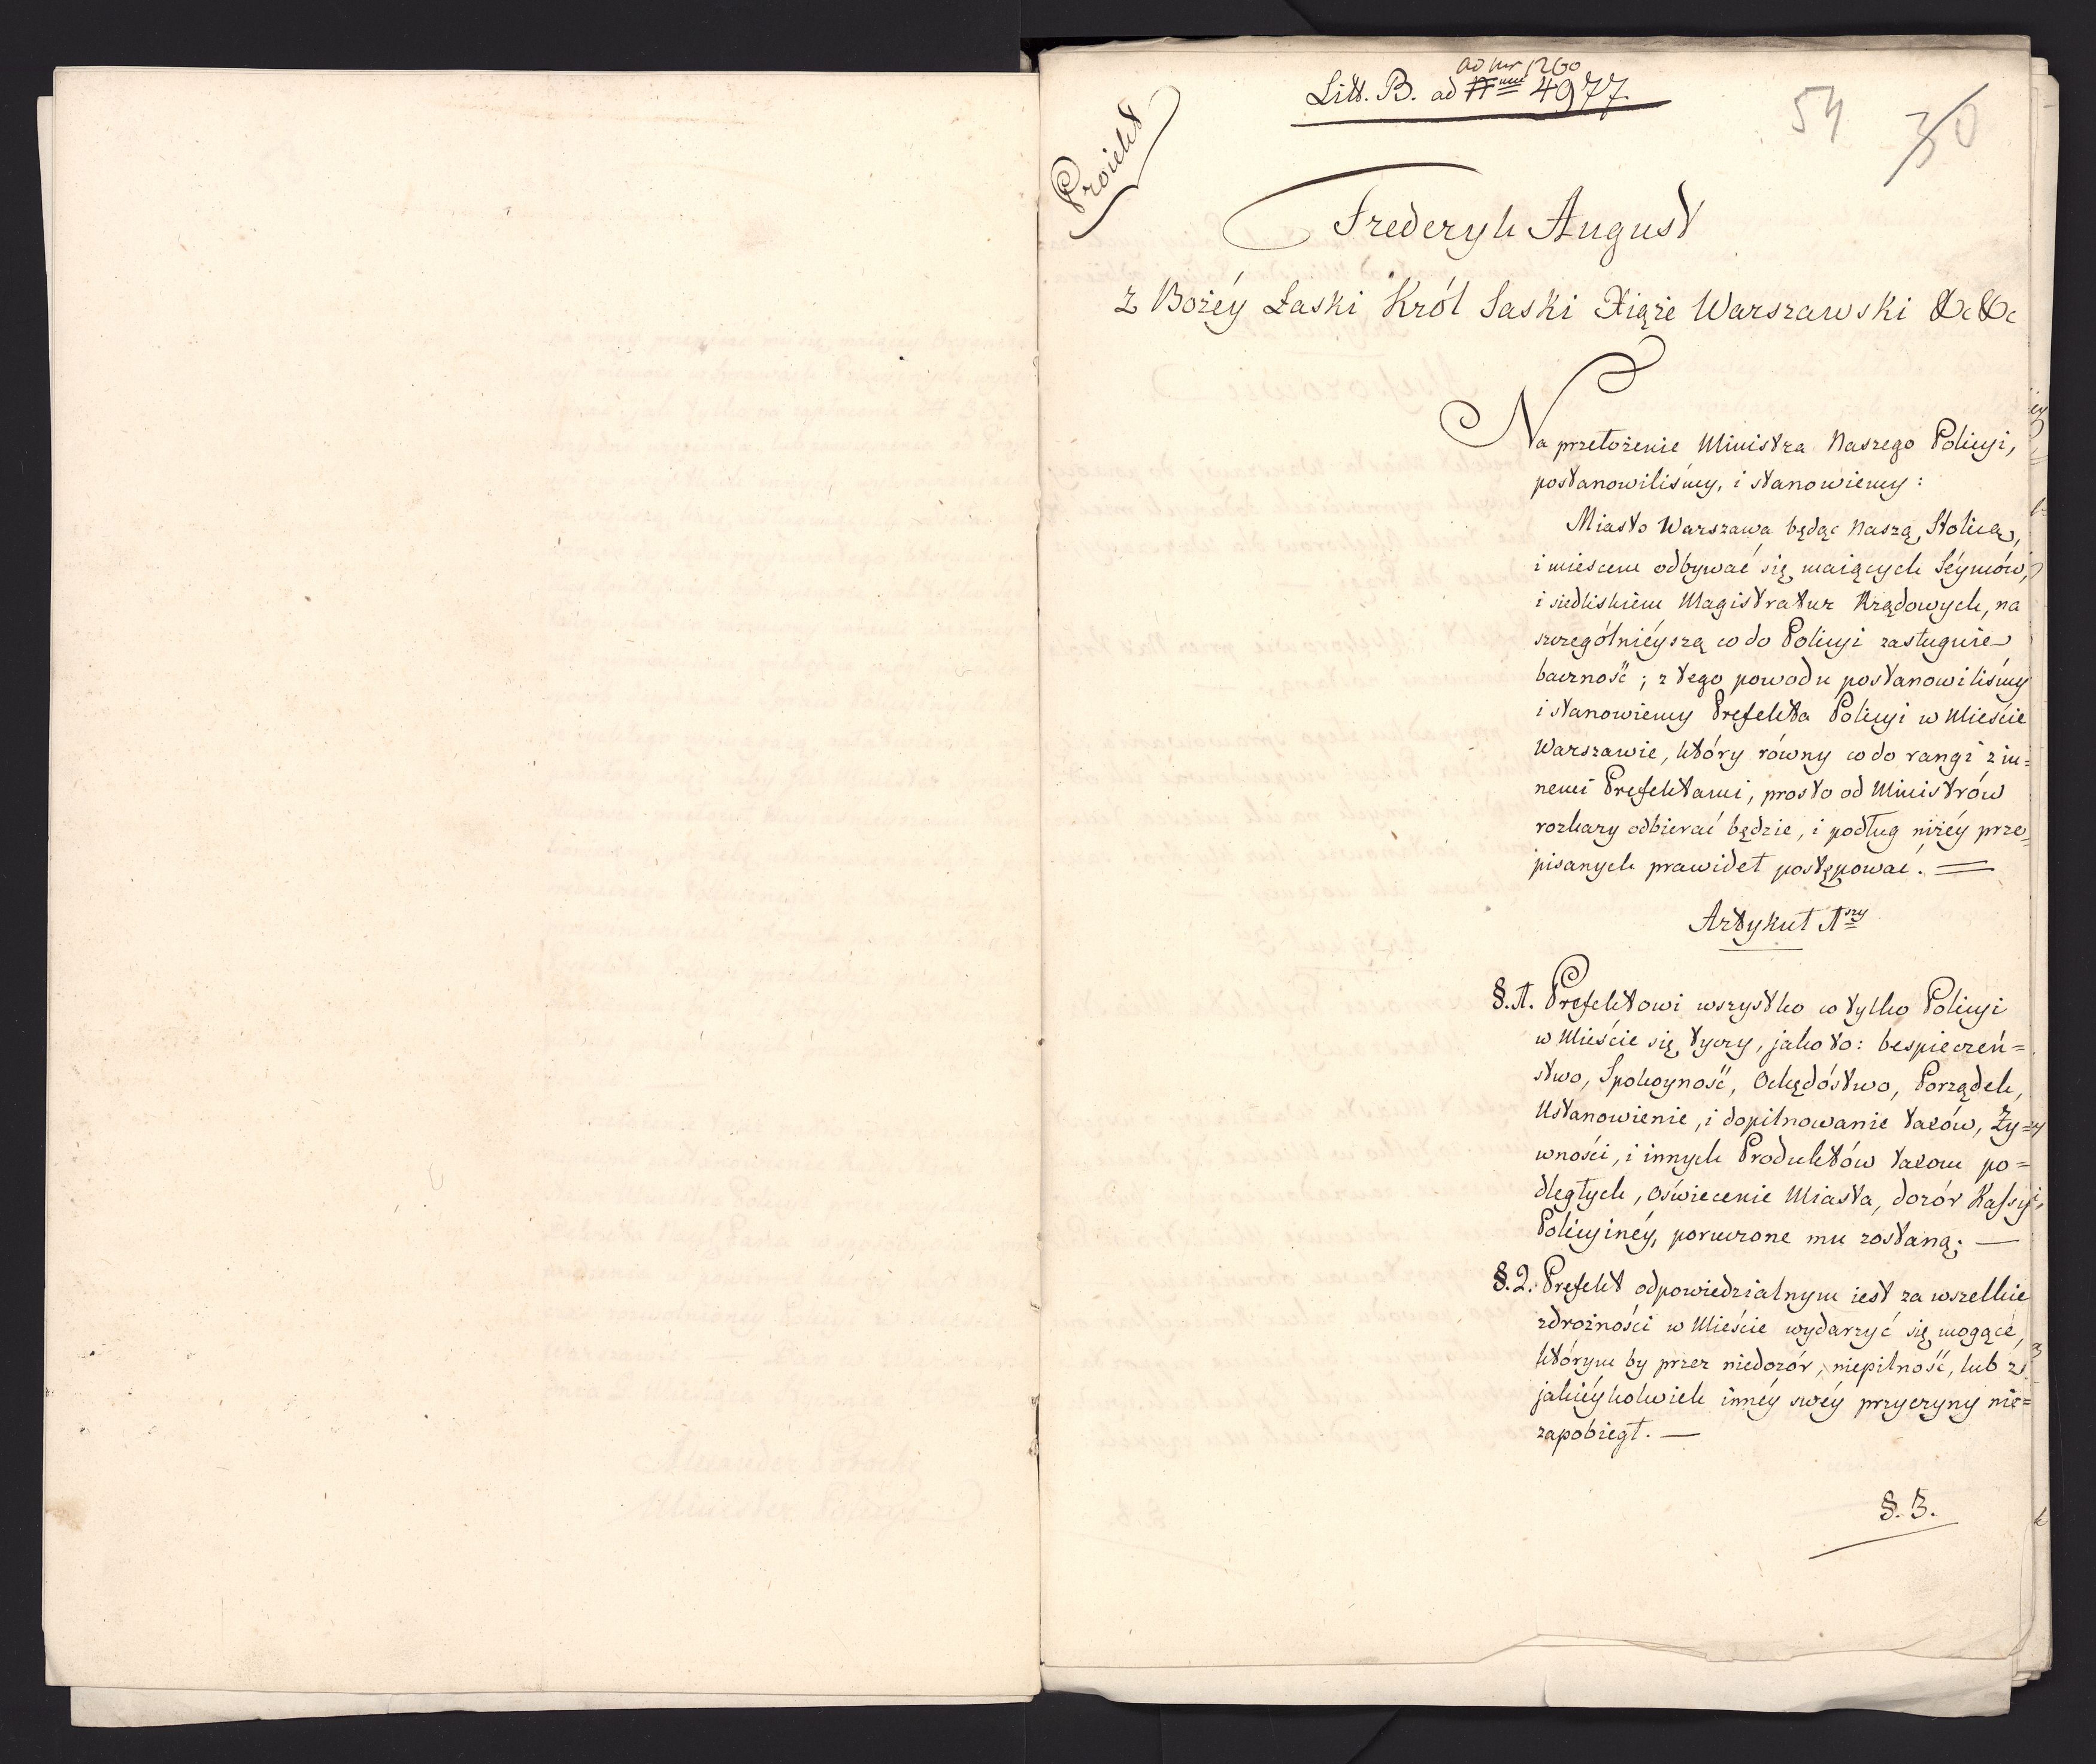 ad nr 1260
Litt. B. ad Nrum 4977.
54 30
Proiekt
Frederyk August
z Bożéy Łaski Król Saski Xiąże Warszawski &c &c
Na przełożenie Ministra Naszego Policyi,
postanowiliśmy, i stanowiemy:
Miasto Warszawa będąc Naszą Stolicą,
i mieścem odbywać się maiących Séymów,
i siedliskiem Magistratur Rządowych, na
szczególniéyszą co do Policyi zasługuie
baczność; z tego powodu postanowiliśmy
i stanowiemy Prefekta Policyi w Mieście
Warszawie, który równy co do rangi z in=
nemi Prefektami, prosto od Ministrów
rozkazy odbierać będzie, i podług niżéy prze=
pisanych prawideł postępować. =
Artykuł 1szy
§. 1. Prefektowi wszystko co tylko Policyi
w Mieście się tyczy, jako to: bespieczeń=
stwo, Spokoyność, Ochędóstwo, Porządek,
Ustanowienie, i dopilnowanie taxów, Ży=
wności, i innych Produktów taxom po=
dległych, Oświecenie Miasta, dozór Kassy
Policyinéy, poruczone mu zostaną; —
§. 2. Prefekt odpowiedzialnym iest za wszelkie
zdrożności w Mieście wydarzyć się mogące,
którym by przez niedozór, niepilność, lub z
jakiéykolwiek innéy swéy przyczyny nie=
zapobiegł. —
§. 3.